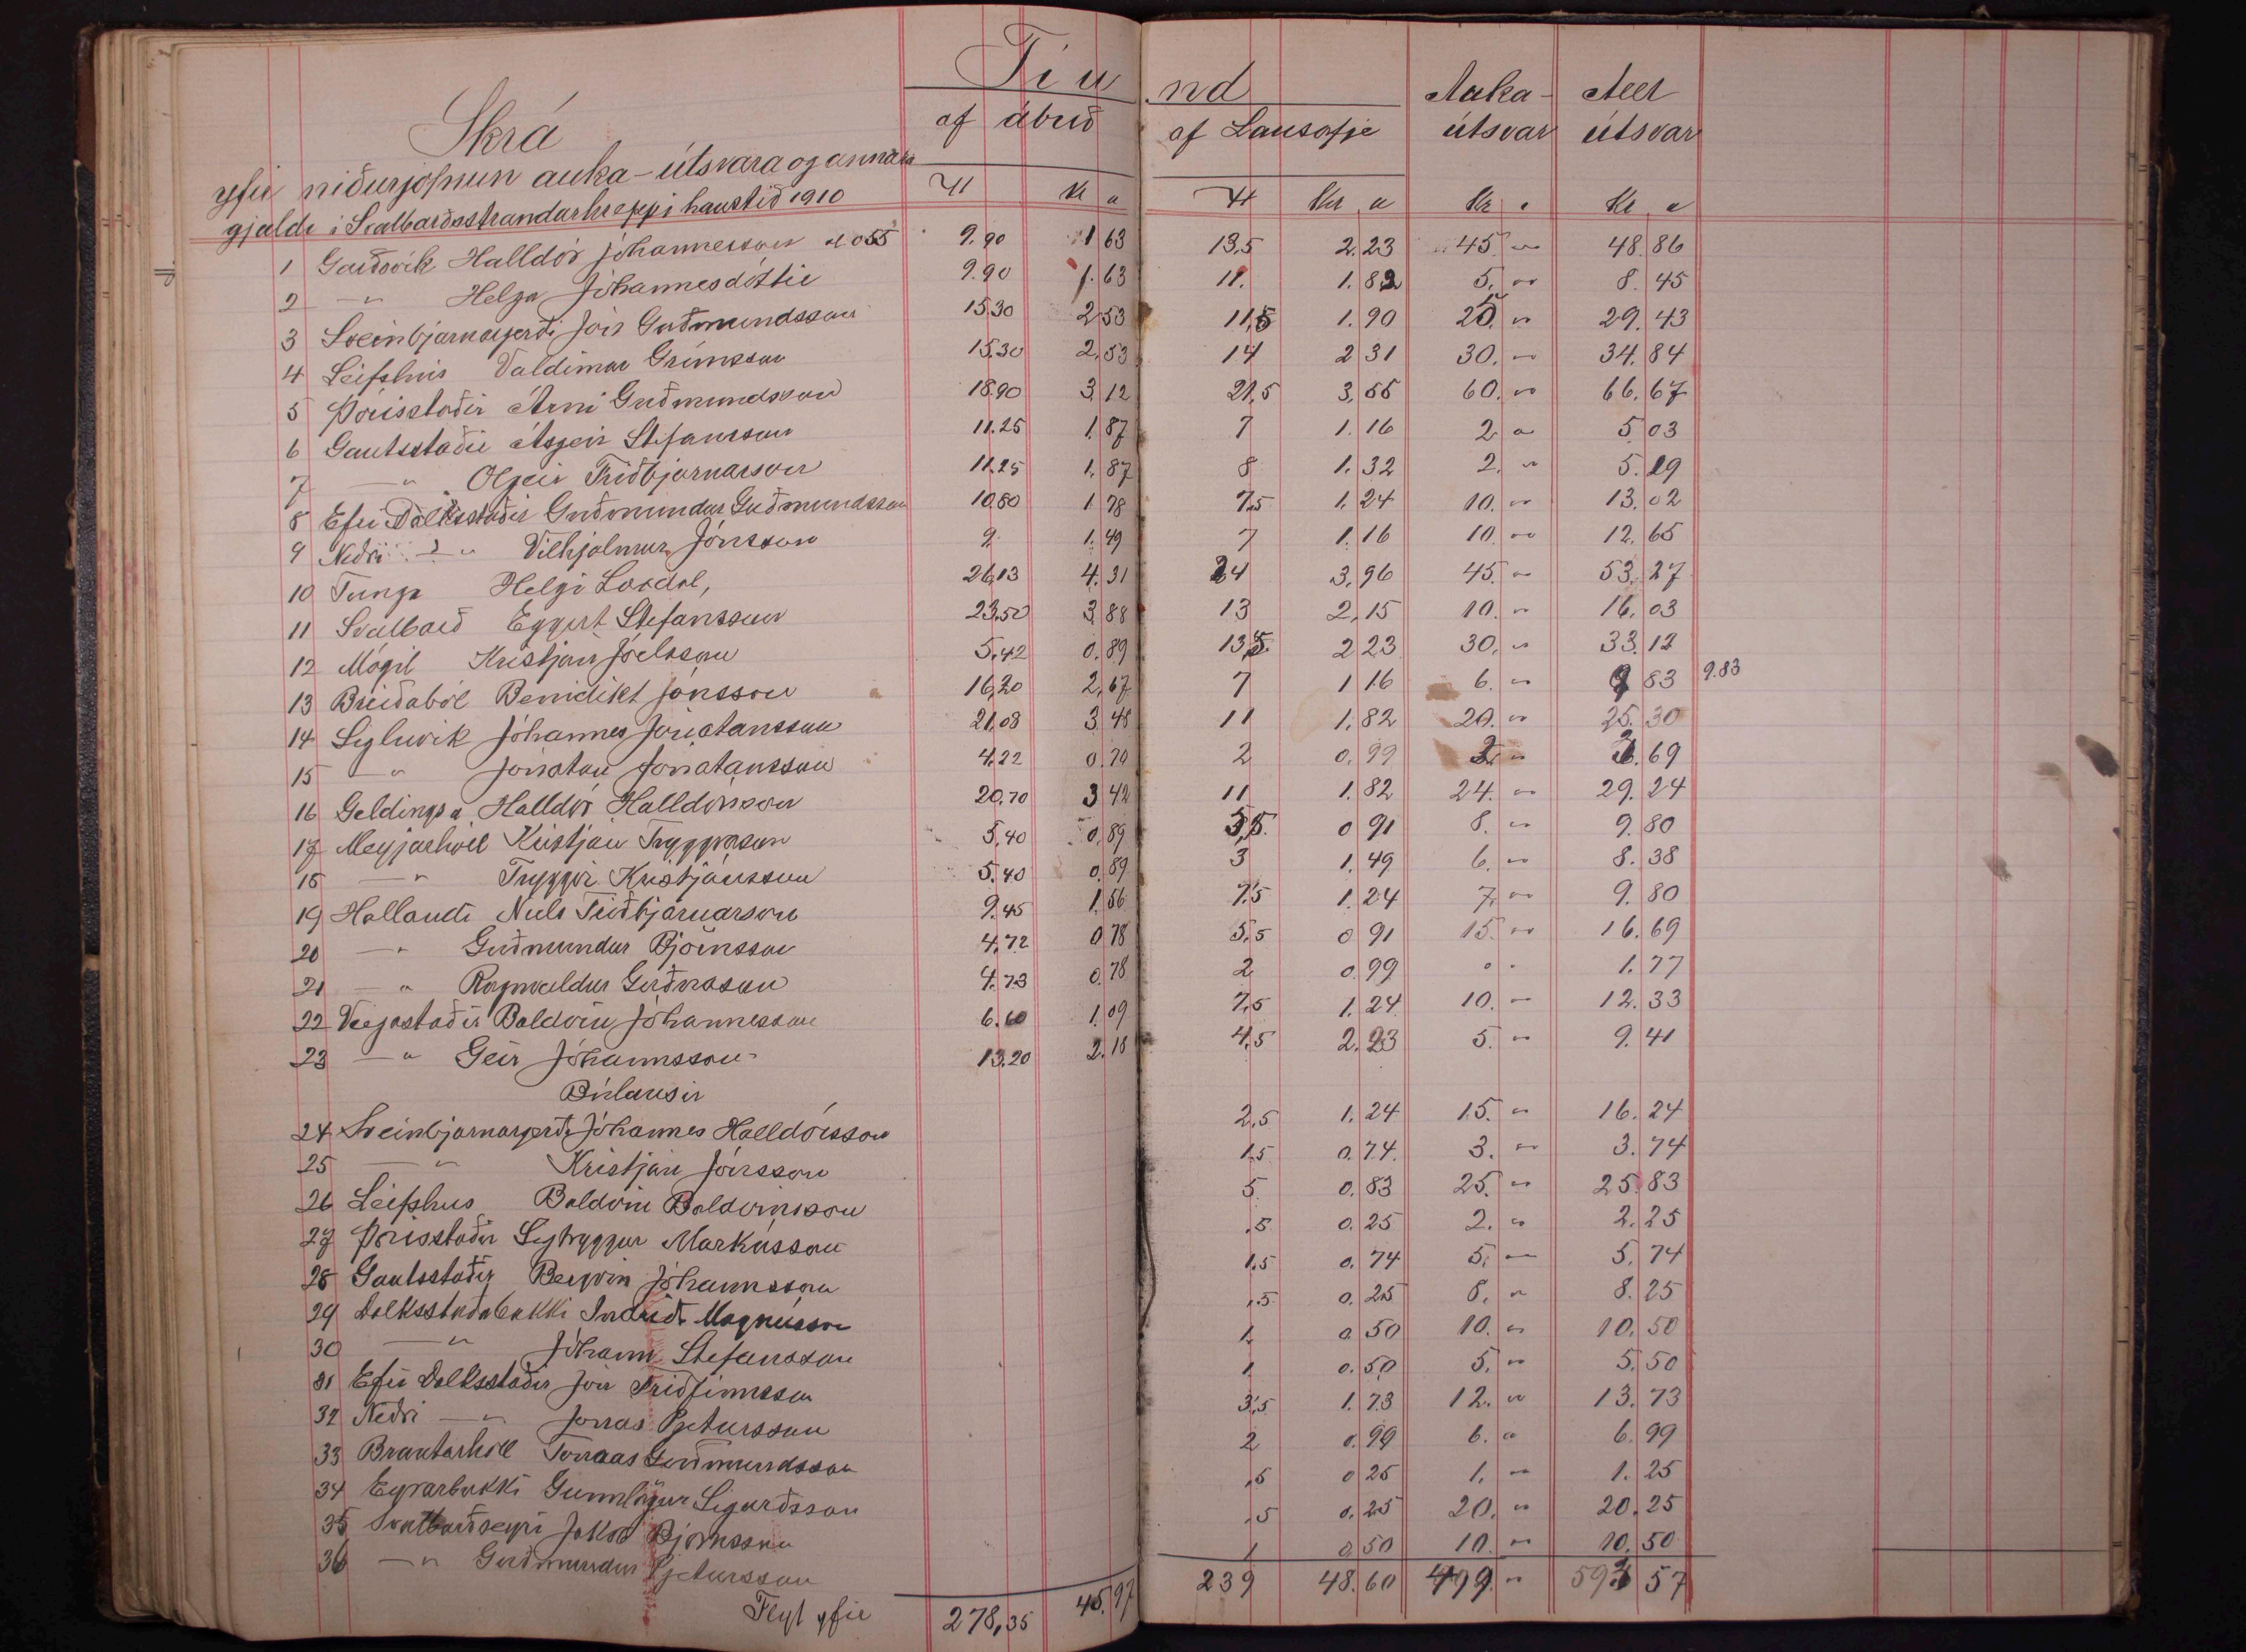 Tíund Auka- Allt
Skrá af ábúð af Lausafje útsvar útsvar
yfir niðurjöfnun auka-útsvara og annara
gjalda í Svalbarðsstrandarhreppi haustið 1910 Kr a Kr a Kr a Kr a
1 Garðsvík Halldór Jóhannesson 9.90 1 63 13,5 2.23 45 " 48.86
2 — " Helga Jóhannesdóttir 9.90 1.63 11. 1.82 5. " 8.45
3 Sveinbjarnargerði Jón Guðmundsson 15.30 2.53 11,5 1.90 25. " 29.43
4 Leifshús Valdimar Grímsson 15.30 2.53 14 2 31 30. " 34.84
5 Þórisstaðir Árni Guðmundsson 18.90 3.12 21,5 3.55 60. " 66.67
6 Gautsstaðir Ásgeir Stefánsson 11.25 1.87 7 1.16 2 " 5.03
7 — " Olgeir Friðbjarnarson 11.25 1.87 8 1.32 2. " 5.19
8 Efri Dálksstaðir Guðmundur Guðmundsson 10.80 1.78 7,5 1.24 10. " 13.02
9 Neðri — " Vilhjálmur Jónsson 9. 1.49 7 1.16 10. " 12.65
10 Tunga Helgi Laxdal, 26,13 4.31 24 3.96 45. " 53.27
11 Svalbarð Eggert Stefánsson 23.50 3.88 13 2.15 10. " 16.03
12 Mógil Kristján Jóelsson 5,42 0.89 13,5 2 23 30. " 33.12
13 Breiðaból Benidikt Jónsson 16,20 2.67 7 1 16 6. " 9 83 9.83
14 Sigluvík Jóhannes Jónatansson 21,08 3.48 11 1.82 20. " 25.30
15 — " Jónatan Jónatansson 4.22 0.70 2 0.99 2. " 2.69
16 Geldingsá Halldór Halldórsson 20.70 3 42 11 1.82 24. " 29.24
17 Meyjarhóll Kristján Tryggvason 5,40 0.89 5,5 0 91 8. " 9.80
18 — " Tryggvi Kristjánsson 5.40 0.89 3 1.49 6. " 8.38
19 Hallandi Níels Friðbjarnarson 9.45 1.56 7.5 1.24 7. " 9.80
20 — " Guðmundur Björnsson 4,72 0.78 5,5 0 91 15. " 16.69
21 — " Rögnvaldur Guðnason 4.73 0.78 2 0.99 " 1.77
22 Veigastaðir Baldvin Jóhannesson 6.60 1.09 7,5 1.24 10. " 12.33
23 — " Geir Jóhannsson 13.20 2.18 4,5 2.23 5. " 9.41
Búlausir
24 Sveinbjarnargerði Jóhannes Halldórsson 2,5 1.24 15. " 16.24
25 — " Kristján Jónsson 1.5 0.74 3. " 3.74
26 Leifshús Baldvin Baldvinsson 5 0.83 25. " 25.83
27 Þórisstaðir Sigtryggur Markússon ,5 0.25 2. " 2.25
28 Gautsstaðir Bergvin Jóhannsson 1.5 0.74 5. " 5.74
29 Dálksstaðabakki Indriði Magnússon ,5 0.25 8. " 8.25
30 — " Jóhann Stefánsson 1 0.50 10. " 10.50
31 Efri Dálksstaðir Jón Friðfinnsson 1 0.50 5. " 5.50
32 Neðri — " Jónas Pjetursson 3,5 1.73 12. " 13.73
33 Brautarhóll Tómas Guðmundsson 2 0.99 6. " 6.99
34 Eyrarbakki Gunnlögur Sigurðsson ,5 0 25 1. " 1.25
35 Svalbarðseyri Jakob Björnsson ,5 0.25 20. " 20.25
36 — " Guðmundur Pjetursson 1 0.50 10. " 10.50
Flyt yfir 278,35 45.97 239 48.60 499. " 593 57